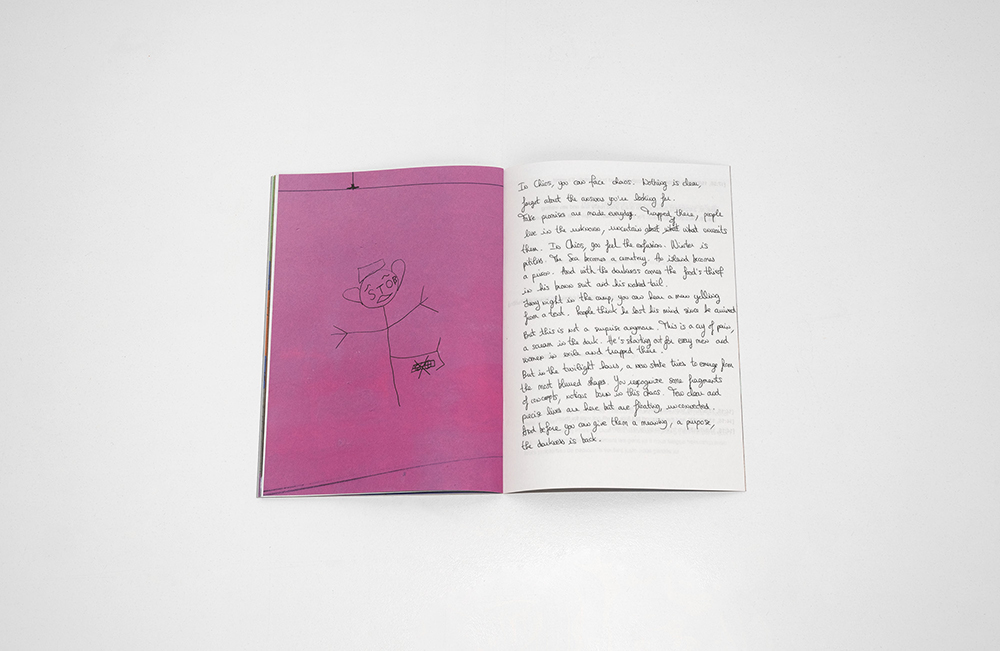 STOP
In Chios, you can face chaos. Nothing is clear,
forget about the answers you're looking for.
Fake promises are made everyday. Trapped there, people
live in the unknown, uncertain of what awaits
them. In Chios, you feel the confusion. Winter is
pitiless. The Sea becomes a cemetery. An island becomes
a prison. And with the darkness comes the food's thief
in his brown suit and his naked tail.
Every night in the camp, you can hear a man yelling
from a tent. People think he lost his mind since he arrived
But this is not a surprise anymore. This is a cry of pain,
a scream in the dark. He's starting out for every men and
women in exile and trapped there.
But in the twilight hours, a new state tries to emerge from
the most blurred shapes. You recognize some fragments
of concepts, notions born in this chaos. Few clear and
precise lines are here but are floating, unconnected.
And before you can give them a meaning, a purpose,
the darkness is back.